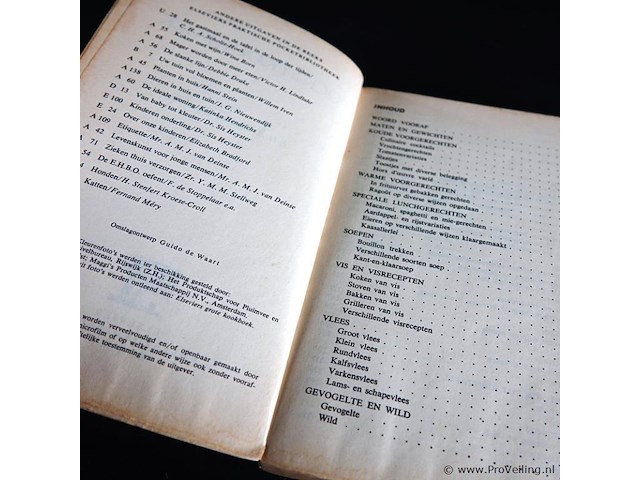 ANDERE UITGAVEN IN DE REEKS
ELSEVIERS PRAKTISCHE POCKETBIBLIOTHEEK
U 28 Het gastmaal en de tafel in de loop der tijden/
C. H. A. Scholte-Hoek
A 53 Koken met wijn/Wina Born
A 68 Mager worden door meer eten/Victor H. Lindlahr
B 56 De slanke lijn/Debbie Drake
A 7 Uw tuin vol bloemen en planten/Willem Iven
A 138 Planten in huis/Hanni Stein
A 60 Dieren in huis en tuin/J. G. Nieuwendijk
D 13 De ideale woning/Katinka Hendrichs
E 100 Van baby tot kleuter/Dr. Sis Heyster
E 24 Kinderen onderling/Dr. Sis Heyster
A 109 Over onze kinderen/Elizabeth Bradford
A 42 Etiquette/Mr. A. M. J. van Deinse
71 Levenskunst voor jonge mensen/Mr. A. M. J. van Deinse
54 Zieken thuis verzorgen/Zr. Y. M. M. Stellweg
4 De E.H.B.O. oefent/F. de Stoppelaar e.a.
Honden/H. Stenfert Kroese-Croll
Katten/Fernand Méry
Omslagontwerp Guido de Waart
kleurenfoto's werden ter beschikking gesteld door:
ivelbureau, Rijswijk (Z.H.); Het Produktschap voor Pluimvee en
st; Maggi's Producten Maatschappij N.V., Amsterdam.
rit foto's werden ontleend aan: Elseviers grote kookboek.
worden verveelvoudigd en/of openbaar gemaakt door
microfilm of op welke andere wijze ook zonder vooraf-
telijke toestemming van de uitgever.
INHOUD
WOORD VOORAF
MATEN EN GEWICHTEN
KOUDE VOORGERECHTEN
Culinaire cocktails
Vruchtenvoorgerechten
Tomatenvariaties
Slaatjes
Toostjes met diverse belegging
Hors d'œuvre varié
WARME VOORGERECHTEN
In frituurvet gebakken gerechten
Ragoût op diverse wijzen opgedaan
SPECIALE LUNCHGERECHTEN
Macaroni, spaghetti en mie-gerechten
Aardappel- en rijstvariaties
Eieren op verschillende wijzen klaargemaakt
Kaasallerlei
SOEPEN
Bouillon trekken
Verschillende soorten soep
Kant-en-klaarsoep
VIS EN VISRECEPTEN
Koken van vis
Stoven van vis
Bakken van vis
Grilleren van vis
Verschillende visrecepten
VLEES
Groot vlees
Klein vlees
Rundvlees
Kalfsvlees
Varkensvlees
Lams- en schapevlees
GEVOGELTE EN WILD
Gevogelte
Wild
© www.ProVeiling.nl